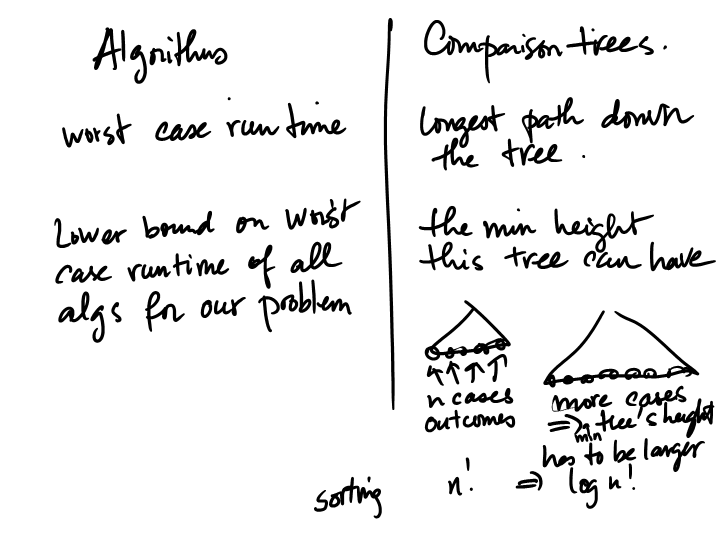 Algorithms
worst case runtime
Lower bound on worst
case runtime of all
algs for our problem
Comparison trees.
longest path down
the tree.
the min height
this tree can have
n cases
outcomes
more cases
⇒ min tree's height
has to be larger
sorting n! ⇒ log n!